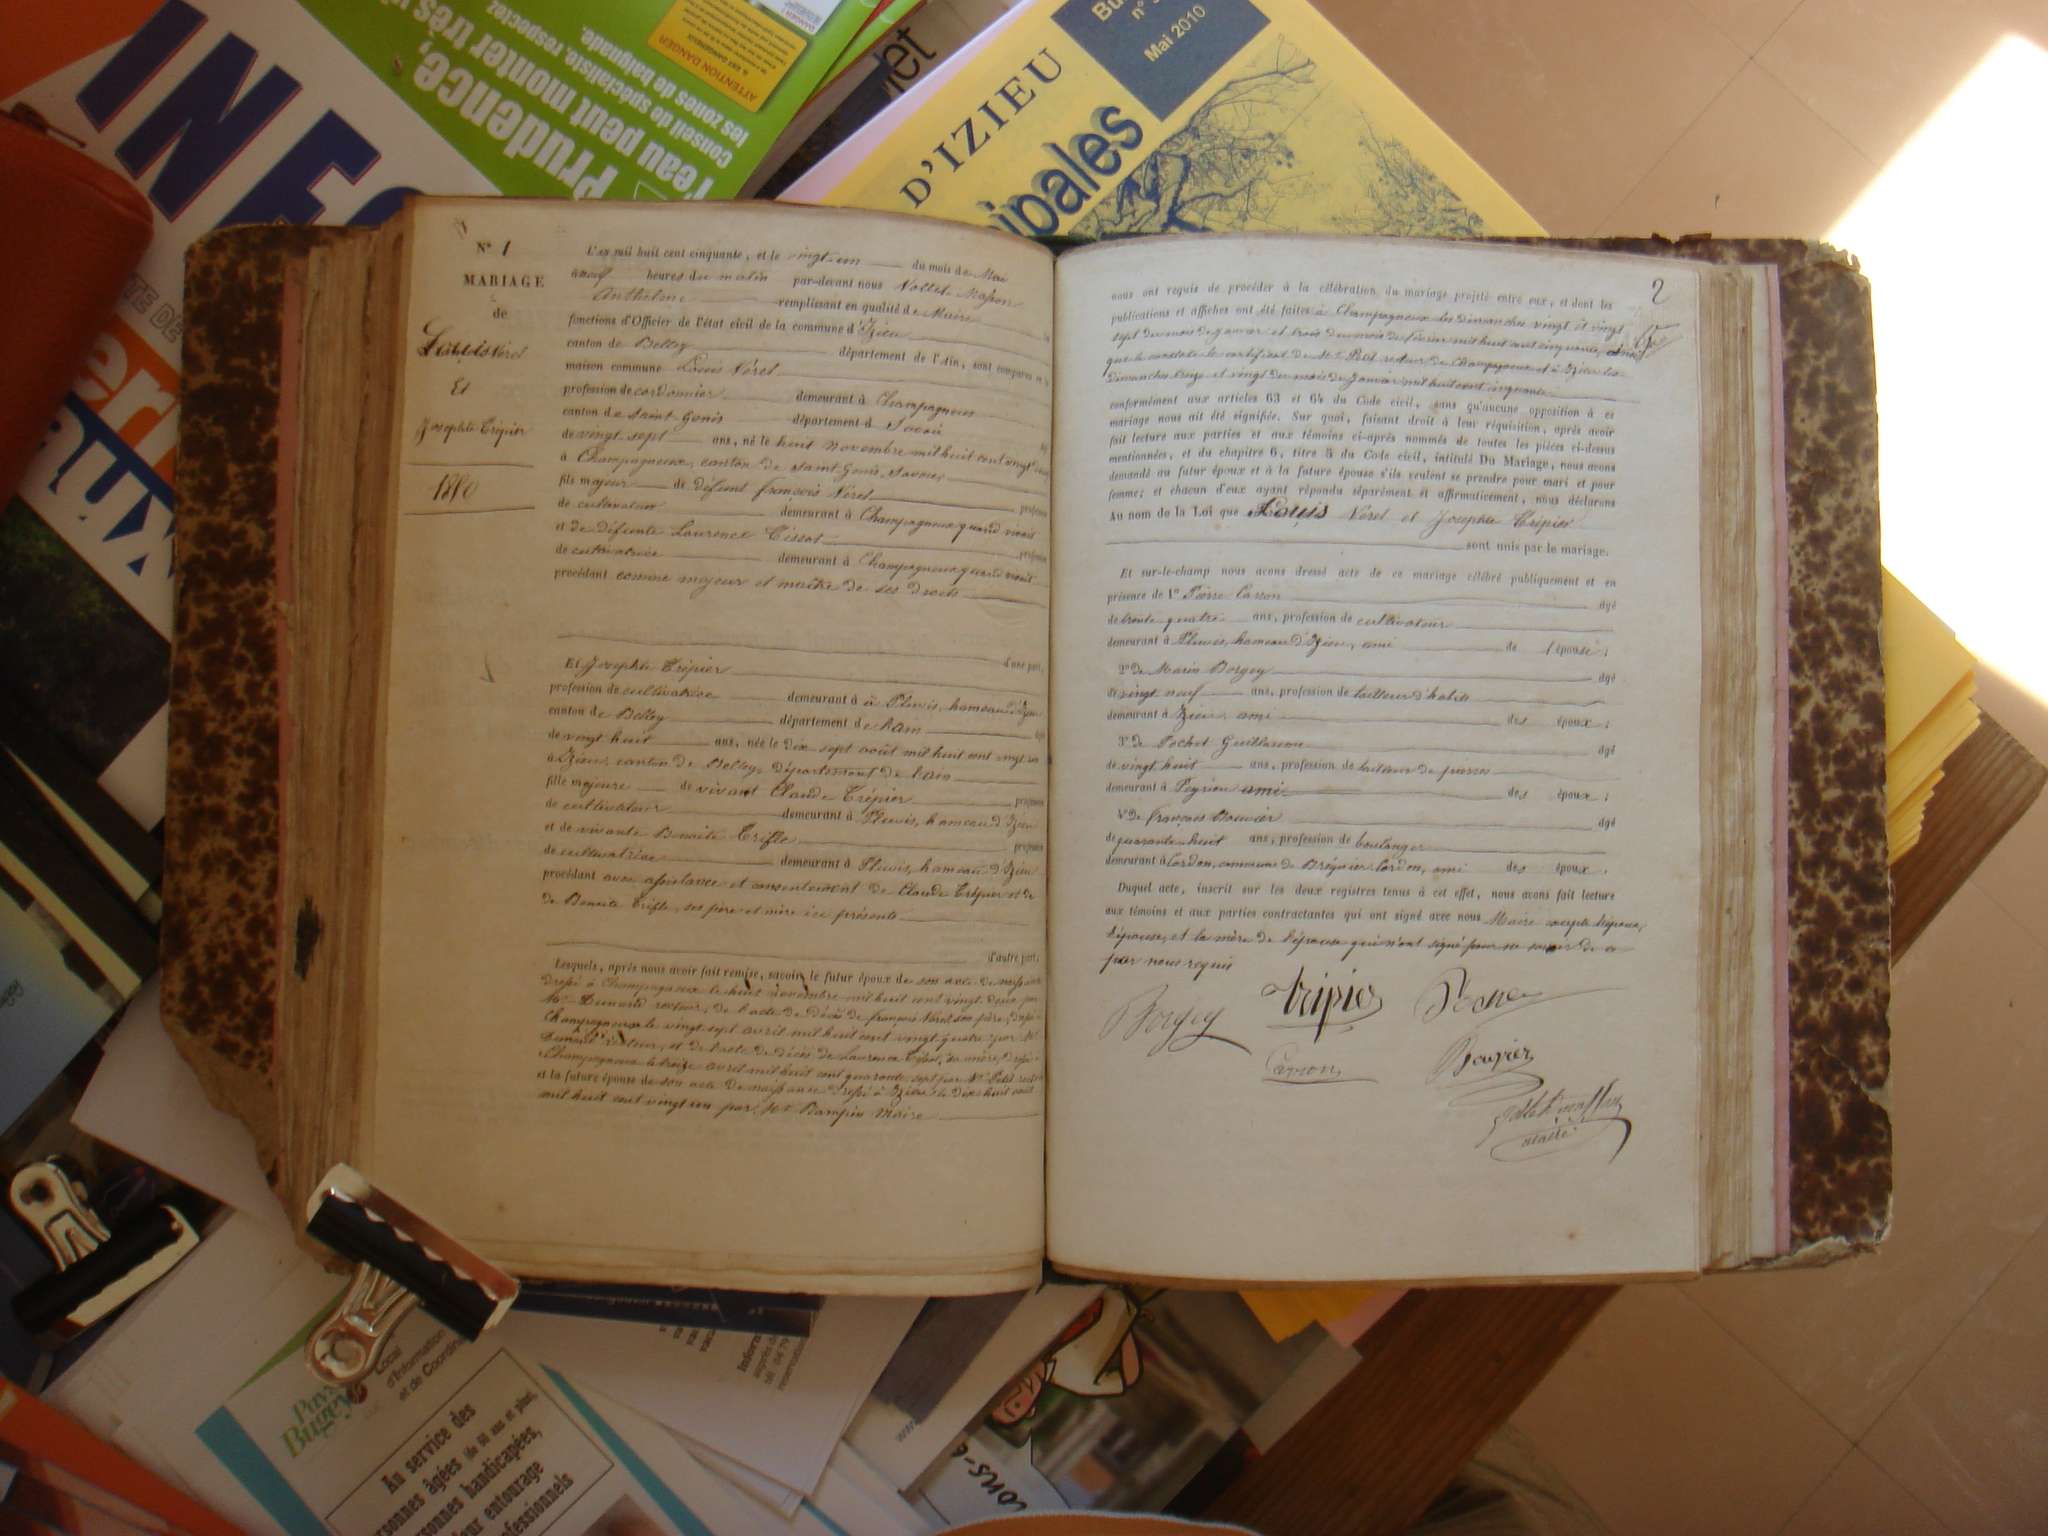 INFO
Prudence,
l'eau peut monter très vi
conseil de spécialiste, respectez
les zones de baignade.
ATTENTION DANGER
Bu
n°
Mai 2010
D'IZIEU
ipales
N° 1
MARIAGE
de
Louis Véret
Et
Josephte Trépier
1850
L'an mil huit cent cinquante, et le vingt-un du mois de Mai
à neuf heures du matin par-devant nous
Anthelme remplissant en qualité de Maire
fonctions d'Officier de l'état civil de la commune d'Izieu
canton de Belley département de l'Ain, sont comparus en la
maison commune Louis Véret
profession de cordonnier demeurant à Champagneux
canton de Saint Genis département de Savoie
de vingt sept ans, né le huit novembre mil huit cent vingt
à Champagneux, canton de Saint Genis, Savoie,
fils majeur de défunt françois Véret profession
de cultivateur demeurant à Champagneux quand vivait
et de défunte Laurence Tissot profession
de cultivatrice demeurant à Champagneux quand vivait
procédant comme majeur et maître de ses droits
d'une part,
Et Josephte Trépier
profession de cultivatrice demeurant à à Pluvis, hameau d'Izieu
canton de Belley département de l'ain
de vingt huit ans, née le dix sept août mil huit cent vingt un
à Izieu, canton de Belley, département de l'ain
fille majeure de vivant Claude Trépier profession
de cultivateur demeurant à Pluvis, hameau d'Izieu
et de vivante Benoite Trifle profession
de cultivatrice demeurant à Pluvis, hameau d'Izieu
procédant avec assistance et consentement de Claude Trépier et de
de Benoite Trifle, ses père et mère ici présents
d'autre part,
Lesquels, après nous avoir fait remise, savoir, le futur époux de son acte de naissance
dressé à Champagneux le huit novembre mil huit cent vingt deux par
Mr Dumard recteur, de l'acte de décès de françois Véret son père, dressé
Champagneux le vingt sept avril mil huit cent vingt quatre par Mr
Dumard recteur, et de l'acte de décès de Laurence Tissot, sa mère, dressé
Champagneux le treize avril mil huit cent quarante sept par Mr Petit recteur
et la future épouse de son acte de naissance dressé à Izieu le dix huit août
mil huit cent vingt un par Mr Maire
2
nous ont requis de procéder à la célébration du mariage projeté entre eux, et dont les
publications et affiches ont été faites à Champagneux les dimanches vingt et vingt
sept du mois de janvier et trois du mois de février mil huit cent cinquante, ainsi
que le constate le certificat de Mr Petit recteur de Champagneux et à Izieu les
dimanches treize et vingt du mois de Janvier mil huit cent cinquante
conformément aux articles 63 et 64 du Code civil, sans qu'aucune opposition à ce
mariage nous ait été signifiée. Sur quoi, faisant droit à leur réquisition, après avoir
fait lecture aux parties et aux témoins ci-après nommés de toutes les pièces ci-dessus
mentionnées, et du chapitre 6, titre 5 du Code civil, intitulé Du Mariage, nous avons
demandé au futur époux et à la future épouse s'ils veulent se prendre pour mari et pour
femme; et chacun d'eux ayant répondu séparément et affirmativement, nous déclarons
Au nom de la Loi que Louis Véret et Josephte Trépier
sont unis par le mariage.
Et sur-le-champ nous avons dressé acte de ce mariage célébré publiquement et en
présence de 1° Pierre Carron âgé
de trente quatre ans, profession de cultivateur
demeurant à Pluvis, hameau d'Izieu, ami de l'épouse;
2° de Marin Borgey âgé
de vingt neuf ans, profession de tailleur d'habits
demeurant à Izieu, ami des époux;
3° de Pochet Guillaume âgé
de vingt huit ans, profession de tailleur de pierres
demeurant à Peyrieu ami des époux;
4° de françois Bouvier âgé
de quarante huit ans, profession de boulanger
demeurant à Cordon, commune de Brégnier Cordon, ami des époux.
Duquel acte, inscrit sur les deux registres tenus à cet effet, nous avons fait lecture
aux témoins et aux parties contractantes qui ont signé avec nous Maire excepté l'époux,
l'épouse, et la mère de l'épouse qui n'ont signé pour ne savoir de ce
par nous requis
Borgey
Trépier
Carron
Bouvier
maire
Pays
Bugey
Local
d'Information
et de Coordin
Au service des
personnes âgées (de 60 ans et plus),
personnes handicapées,
leur entourage
professionnels
www.
cons-e